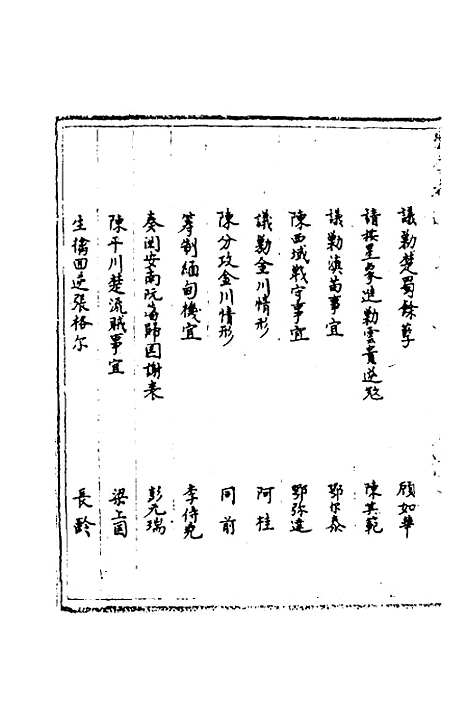 議勦楚蜀餘孽 顧如華
請按星象進勦雲貴逆 陳其範
議勦滇苗事宜 鄂尔泰
陳西域戰守事宜 鄂弥達
議勦金川情形 阿桂
陳分攻金川情形 同前
筹制緬甸機宜 李侍尧
奏闵安南阮 歸囯謝表 彭元瑞
陳平川楚流賊事宜 梁上囯
生擒回逆張格尔 長齡